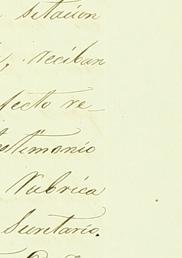 sitacion
, reciban
fecto re-
testimonio
Rubrica
Secretario.